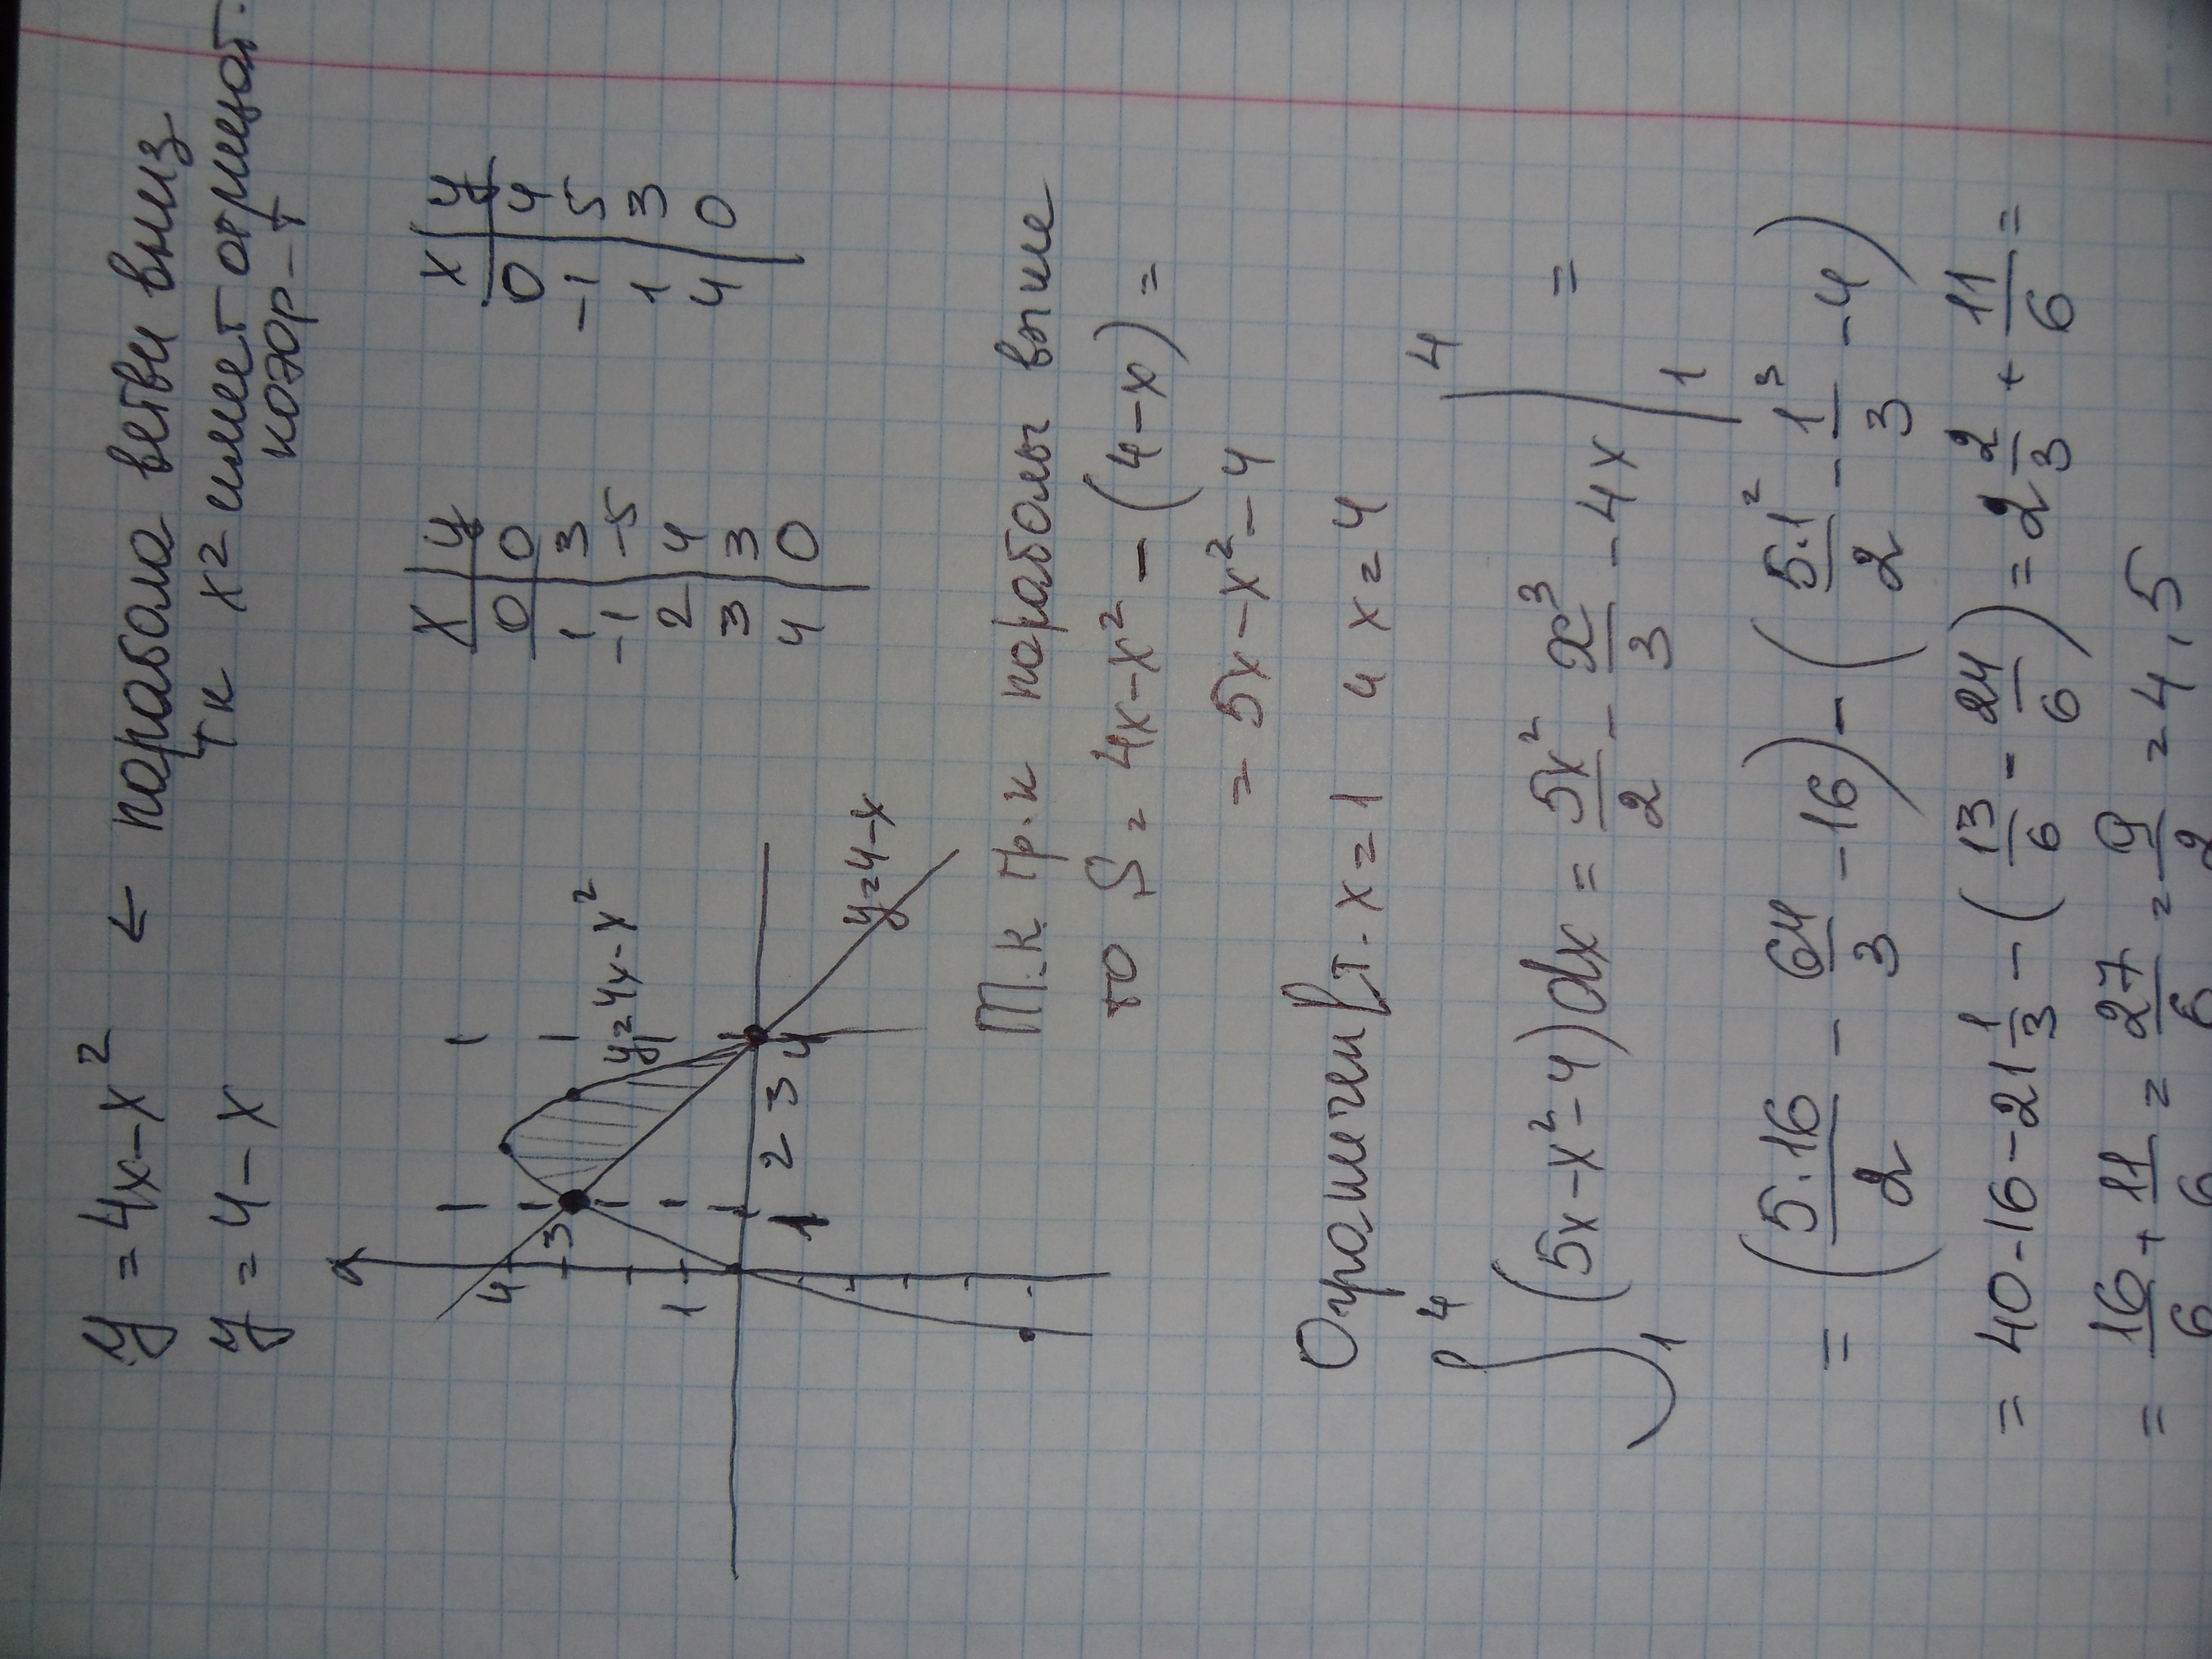 y = 4x - x² ← парабола ветви вниз
y = 4 - x
тк x² имеет отрицат.
коэф-т
x | y
0 | 0
1 | 3
-1 | -5
2 | 4
3 | 3
4 | 0
x | y
0 | 4
-1 | 5
1 | 3
4 | 0
4
3
1
1 2 3 4
y=4x-x²
y=4-x
Т.к гр.к параболы выше
то S = 4x-x² - (4-x) =
= 5x-x²-4
Ограничен т. x=1 и x=4
∫₁⁴ (5x-x²-4)dx = 5x²/2 - x³/3 - 4x |₁⁴ =
= (5·16/2 - 64/3 - 16) - (5·1²/2 - 1³/3 - 4)
= 40-16-21 1/3 - (13/6 - 24/6) = 2 2/3 + 11/6 =
= 16/6 + 11/6 = 27/6 = 9/2 = 4,5